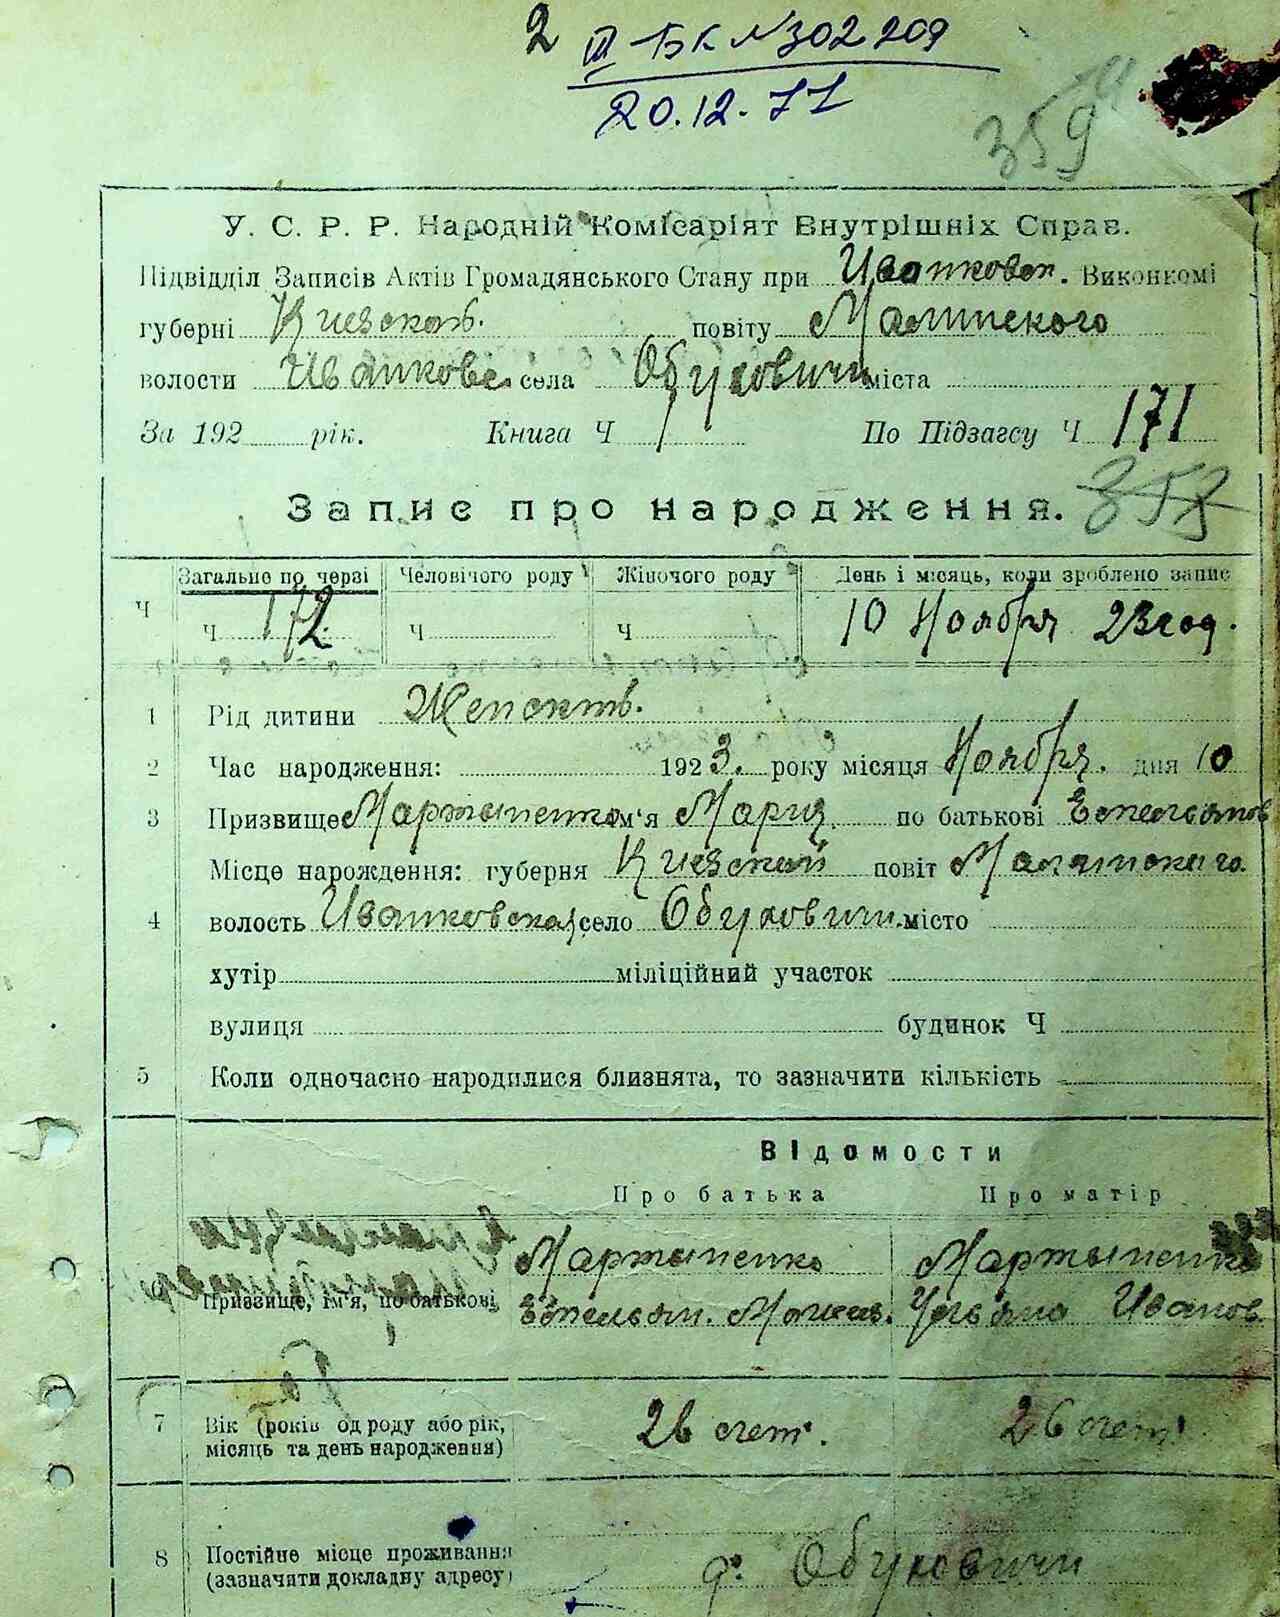 2 III БК №302209
20.12.77
359
У. С. Р. Р. Народній Комісаріят Внутрішніх Справ.
Підвідділ Записів Актів Громадянського Стану при Иванковск. Виконкомі
губерні Киевской. повіту Малинского
волости Иванковс. села Обуховичи міста
За 192 рік. Книга Ч По Підзагсу Ч 171
Запис про народження. 358
Загально по черзі Человічого роду Жіночого роду День і місяць, коли зроблено запис
Ч Ч 172 Ч Ч 10 Ноября 23 год.
1 Рід дитини Женск
2 Час народження: 1923. року місяця Ноября. дня 10
3 Призвище Мартыненко Ім'я Мария. по батькові Емельянов
Місце нарождення: губерня Киевской повіт Малинскаго.
4 волость Иванковская село Обуховичи місто
хутір міліційний участок
вулиця будинок Ч
5 Коли одночасно народилися близнята, то зазначити кількість
Відомости
Про батька Про матір
Мартыненко Мартыненко
Призвище, ім'я, по батькові, Емельян. Ульяна Иванов.
7 Вік (років од роду або рік, 26 лет. 26 лет.
місяць та день народження)
8 Постійне місце проживання
(зазначити докладну адресу) д. Обуховичи